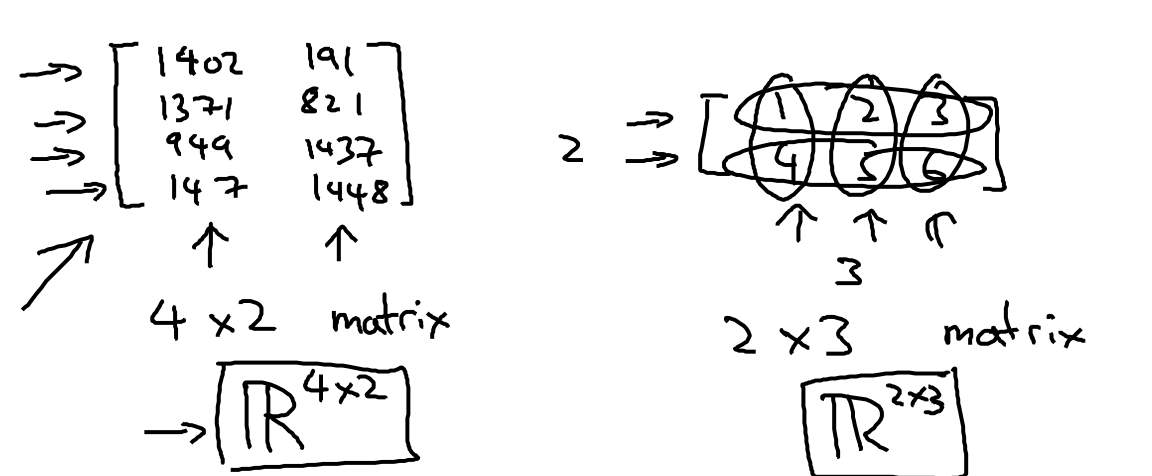 1402 191
1371 821
949 1437
147 1448
4 x 2 matrix
ℝ 4x2
2
1 2 3
4 5 6
3
2 x 3 matrix
ℝ 2x3